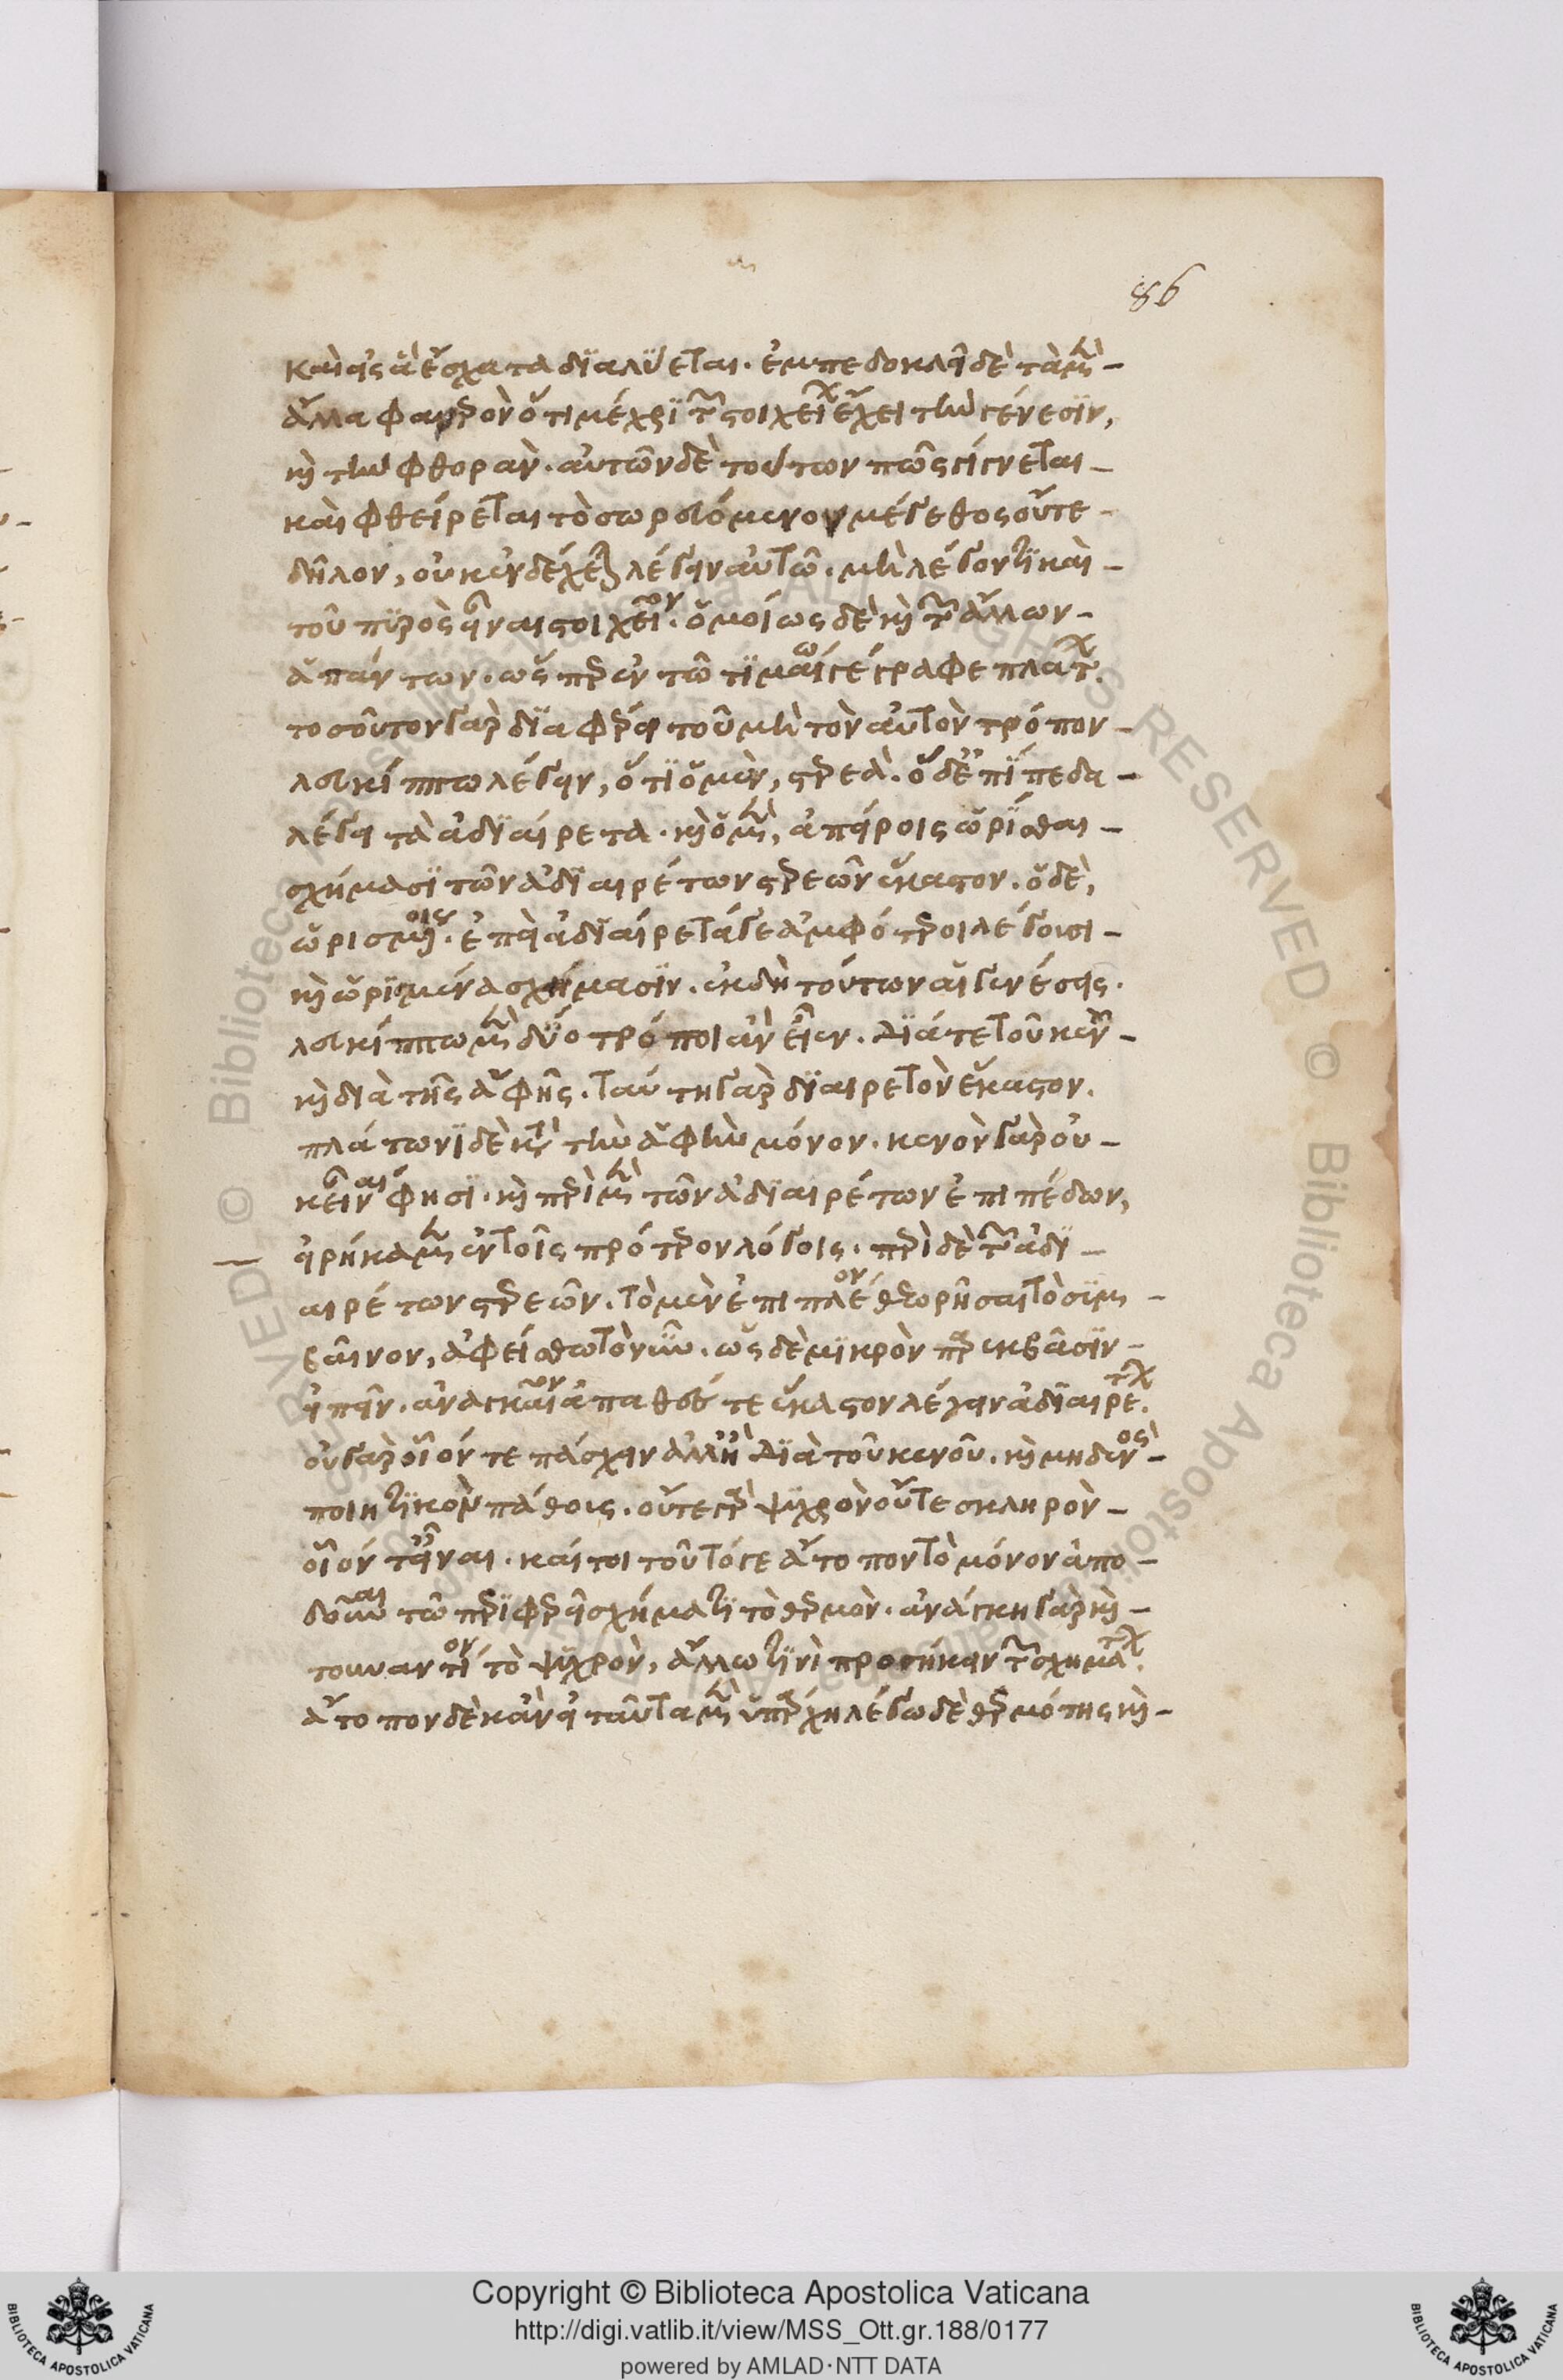 86
καὶ εἰς ἃ ἔσχατα διαλύεται. ἐμπεδοκλεῖ δὲ τὰ μὲν
ἄλλα φανερὸν ὅτι μέχρι τῶν στοιχείων ἔχει τὴν γένεσιν,
καὶ τὴν φθοράν. αὐτῶν δὲ τούτων πῶς γίγνεται
καὶ φθείρεται τὸ σωρευόμενον μέγεθος οὔτε
δῆλον, οὐκ ἐνδέχεται λέγειν αὐτῶ. μὴ λέγοντι καὶ
τοῦ πυρὸς εἶναι στοιχεῖον. ὁμοίως δὲ καὶ τῶν ἄλλων
ἁπάντων. ὥσπερ ἐν τῶ τιμαίω γέγραφε πλάτων.
τοσοῦτον γὰρ διαφέρει τοῦ μὴ τὸν αὐτὸν τρόπον
λευκίππω λέγειν, ὅτι ὁ μὲν, στερεά. ὁ δ' ἐπίπεδα
λέγει τὰ ἀδιαίρετα. καὶ ὁ μὲν, ἀπείροις ὡρίσθαι
σχήμασι τῶν ἀδιαιρέτων στερεῶν ἕκαστον. ὁ δὲ,
ὡρισμένοις. ἐπεὶ ἀδιαίρετά γε ἀμφότεροι λέγουσι
καὶ ὡρισμένα σχήμασιν. ἐκ δὴ τούτων αἱ γενέσεις.
λευκίππω μὲν δύο τρόποι ἂν εἶεν. διά τε τοῦ κενοῦ
καὶ διὰ τῆς ἁφῆς. ταύτη γὰρ διαιρετὸν ἕκαστον.
πλάτωνι δὲ κατὰ τὴν ἁφὴν μόνον. κενὸν γὰρ οὐ
κ εἶναί φησι. καὶ περὶ μὲν τῶν ἀδιαιρέτων ἐπιπέδων,
εἰρήκαμεν ἐν τοῖς πρότερον λόγοις. περὶ δὲ τῶν ἀδι
αιρέτων στερεῶν. τὸ μὲν ἐπιπλέον θεωρῆσαι τὸ συμ
βαῖνον, ἀφείσθω τὸ νῦν. ὡς δὲ μικρὸν παρεκβᾶσιν
εἰπεῖν. ἀναγκαῖον ἀπαθές τε ἕκαστον λέγειν ἀδιαιρέτων.
οὐ γὰρ οἷόν τε πάσχειν ἀλλ' ἢ διὰ τοῦ κενοῦ. καὶ μηδενὸς
ποιητικὸν πάθους. οὔτε γὰρ ψυχρὸν οὔτε σκληρὸν
οἷόν τ' εἶναι. καίτοι τοῦτό γε ἄτοπον τὸ μόνον ἀπο
δοῦναι τῶ περιφερεῖ σχήματι τὸ θερμόν. ἀνάγκη γὰρ καὶ
τοὐναντίον τὸ ψυχρὸν, ἄλλω τινὶ προσήκειν τῶν σχημάτων.
ἄτοπον δὲ κἂν εἰ ταῦτα μὲν ὑπάρχη λέγω δὲ θερμότης καὶ
Copyright © Biblioteca Apostolica Vaticana
http://digi.vatlib.it/view/MSS_Ott.gr.188/0177
powered by AMLAD·NTT DATA